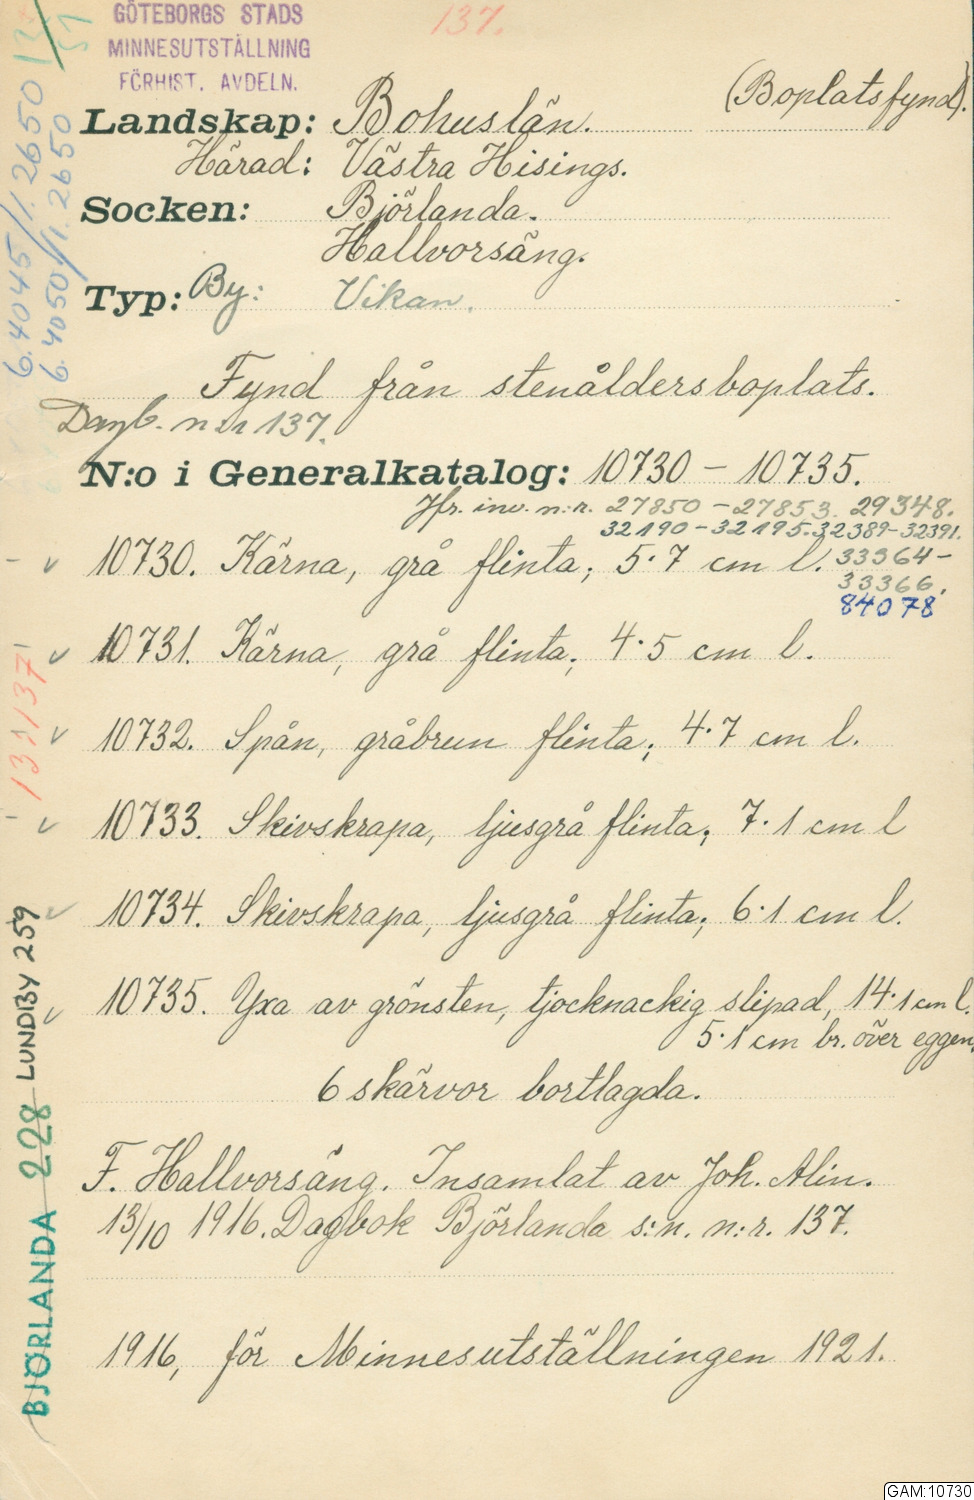 137.
GÖTEBORGS STADS
MINNESUTSTÄLLNING
FÖRHIST. AVDELN.
(Boplatsfynd).
Landskap: Bohuslän.
Härad: Västra Hisings.
Socken: Björlanda.
Hallvorsäng.
Typ: By: Vikan.
Fynd från stenåldersboplats.
Dagb. n:r 137.
N:o i Generalkatalog: 10730 – 10735.
Jfr. inv. n:r. 27850 – 27853. 29348.
32190–32195. 32389–32391.
33364–
33366.
84078
10730. Kärna, grå flinta; 5·7 cm l.
10731. Kärna, grå flinta; 4·5 cm l.
10732. Spån, gråbrun flinta; 4·7 cm l.
10733. Skivskrapa, ljusgrå flinta; 7·1 cm l
10734. Skivskrapa, ljusgrå flinta; 6·1 cm l.
10735. Yxa av grönsten, tjocknackig slipad, 14·1 cm l.
5·1 cm br. över eggen.
6 skärvor bortlagda.
F. Hallvorsäng. Insamlat av Joh. Alin.
13/10 1916. Dagbok Björlanda s:n. n:r. 137.
1916, för Minnesutställningen 1921.
6.4045/1.2650
6.4050/1.2650
BJÖRLANDA 228 LUNDBY 259
GAM:10730